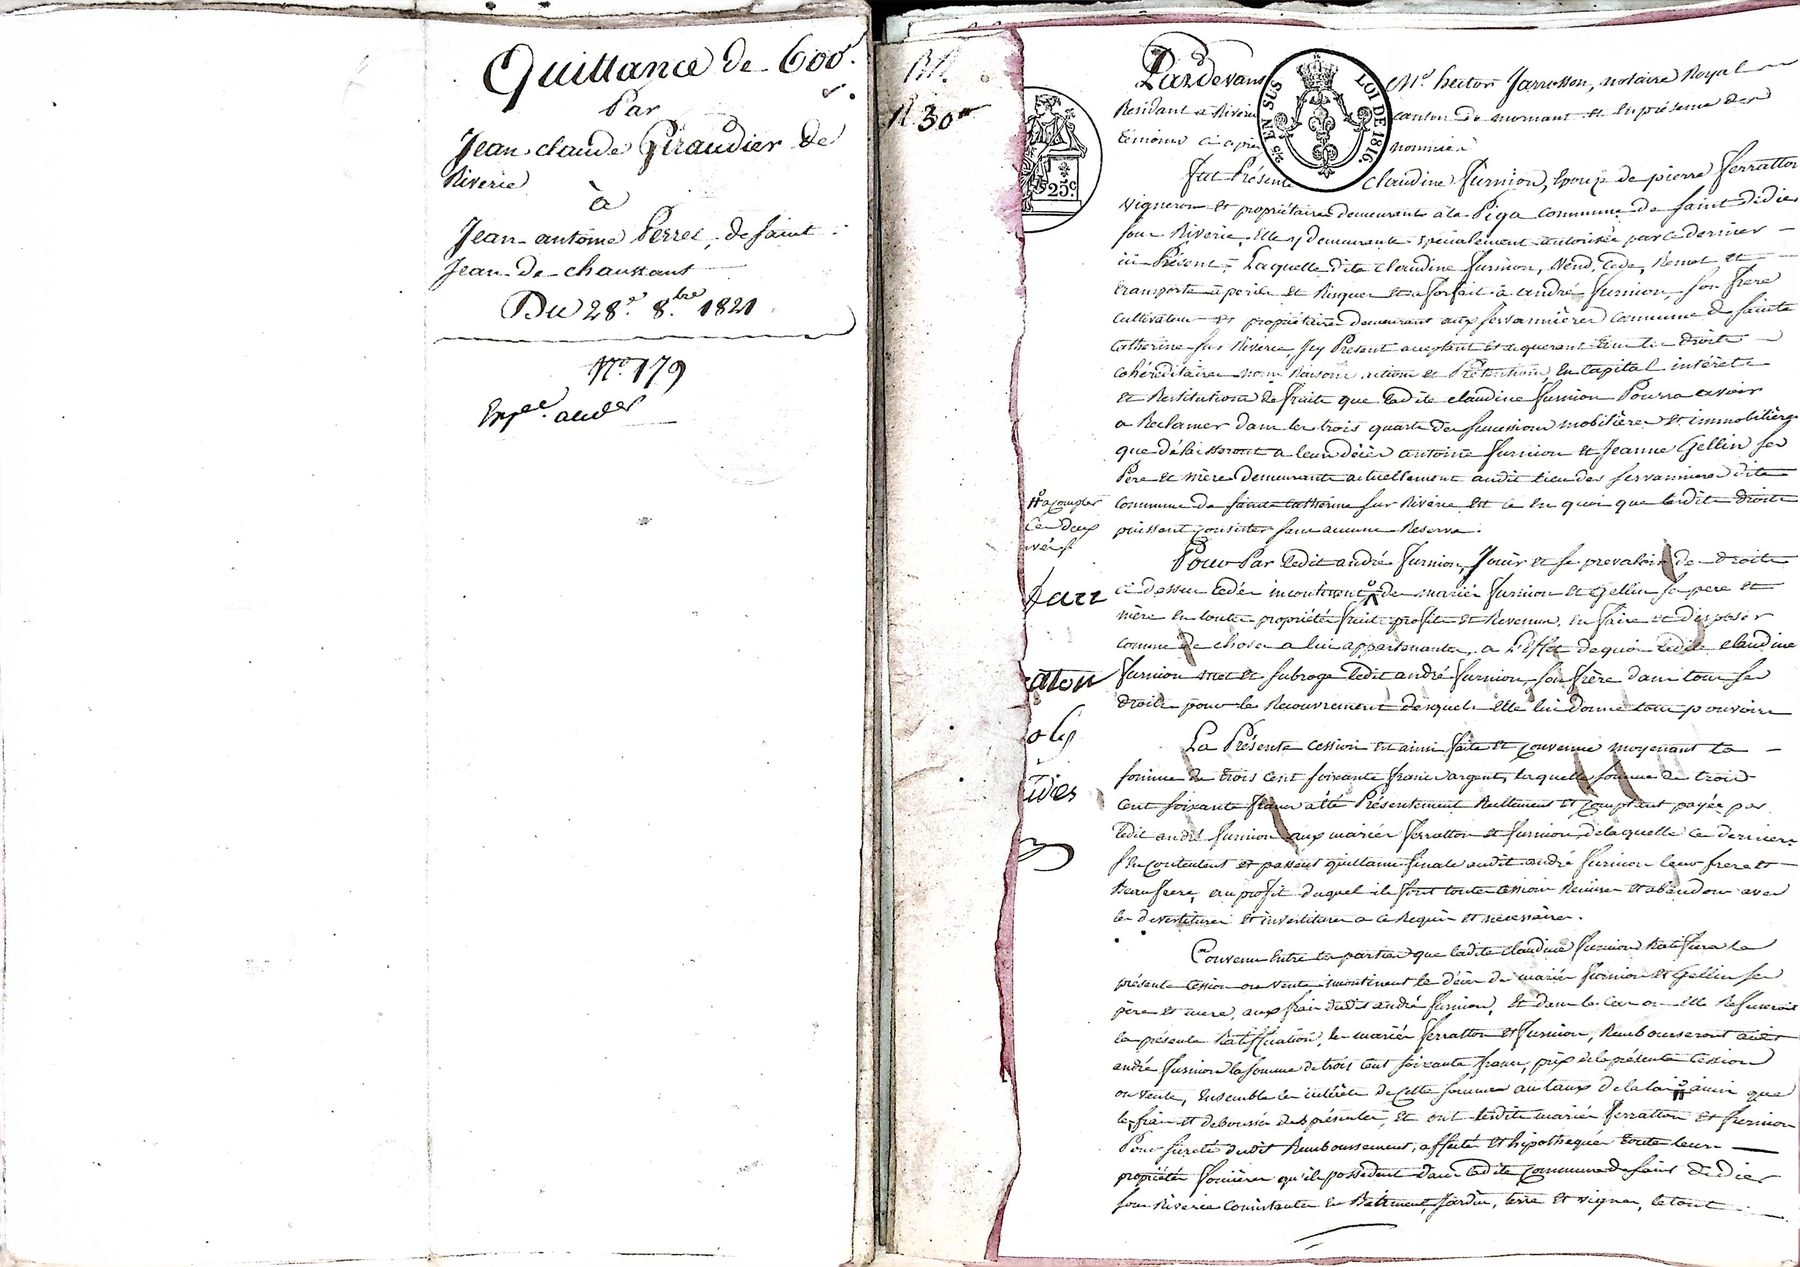 Quittance de 600f.
Par
Jean claude Giraudier de
Riverie
à
Jean antoine Perret, de saint
Jean de chaussant
Du 28e. 8.bre 1821
No. 179
Expée. aud
R. 30
25c.
EN SUS
LOI DE 1816.
Pardevant Me. hector Jarrosson, notaire Royal
Residant a Riverie canton de mornant et en présence des
témoins ci après nommés
Fut Présente claudine Furnion, Epouse de pierre Ferratton
vigneron et propriétaire demeurant à la Piga commune de saint didier
sous Riverie, Elle y demeurante spécialement autorisée par ce dernier
ici Présent, Laquelle dite claudine Furnion, Vend, Cede, Remet et
transporte a perils et Risques et a forfait à andré Furnion son frere
cultivateur et propriétaire demeurant aux servannières commune de sainte
catherine sur Riverie, Icy Présent acceptant et acquerant tous les droits
cohéréditaires noms Raisons actions et Prétentions En Capital intérêts
et Restitutions de fruits que ladite claudine Furnion Pourra avoir
a Reclamer dans les trois quarts des successions mobilières et immobilières
que délaisseront a leur décès antoine Furnion et Jeanne Gellin ses
Père et mère demeurants actuellement audit lieu des servannières dite
commune de sainte catherine sur Riverie Et ce En quoi que lesdits droits
puissent consister sans aucune Reserve.
a compter
Pour Par ledit andré Furnion, Jouir et se prevaloir des droits
ci dessus cedés incontinent des mariés Furnion et Gellin ses pere et
mère en toute propriété fruits profits et Revenus, en faire et disposer
comme de choses a lui appartenantes, a l'Effet de quoi ladite claudine
Furnion met et subroge ledit andré Furnion, son frère dans tous ses
droits pour le Recouvrement desquels Elle lui donne tout pouvoirs
La Présente cession est ainsi faite et convenue moyenant la
somme de trois cent soixante francs argent, laquelle somme de trois
cent soixante francs a été Présentement Reellement et comptant payée par
ledit andré Furnion aux mariés Ferratton et Furnion, de laquelle ce derniers
s'En contentent et passent quittance finale audit andré Furnion leur frere et
beaufrere, au profit duquel ils font toutes cession Remises et abandon avec
les devestitures et investitures a ce Requis et necessaires.
Convenu Entre les parties que ladite claudine Furnion Ratifiera la
présente cession ou vente incontinent le décès des mariés Furnion et Gellin ses
père et mere, aux frais dudit andré Furnion, Et dans le cas ou elle Refuseroit
la présente Ratification, les mariés Ferratton et Furnion, Rembourseront audit
andré Furnion la somme de trois cent soixante francs, prix de la présente cession
ou vente, Ensemble les intérêts de cette somme au taux de la loi ainsi que
les frais et deboursés des présentes, Et ont lesdits mariés Ferratton et Furnion
Pour sureté dudit Remboursement, affecté et hipothequer toutes leurs
propriétés foncières qu'ils possedent dans ladite commune de saint Didier
sous Riverie Consistantes En Bâtiment, Jardin, terre et vignes, le tout